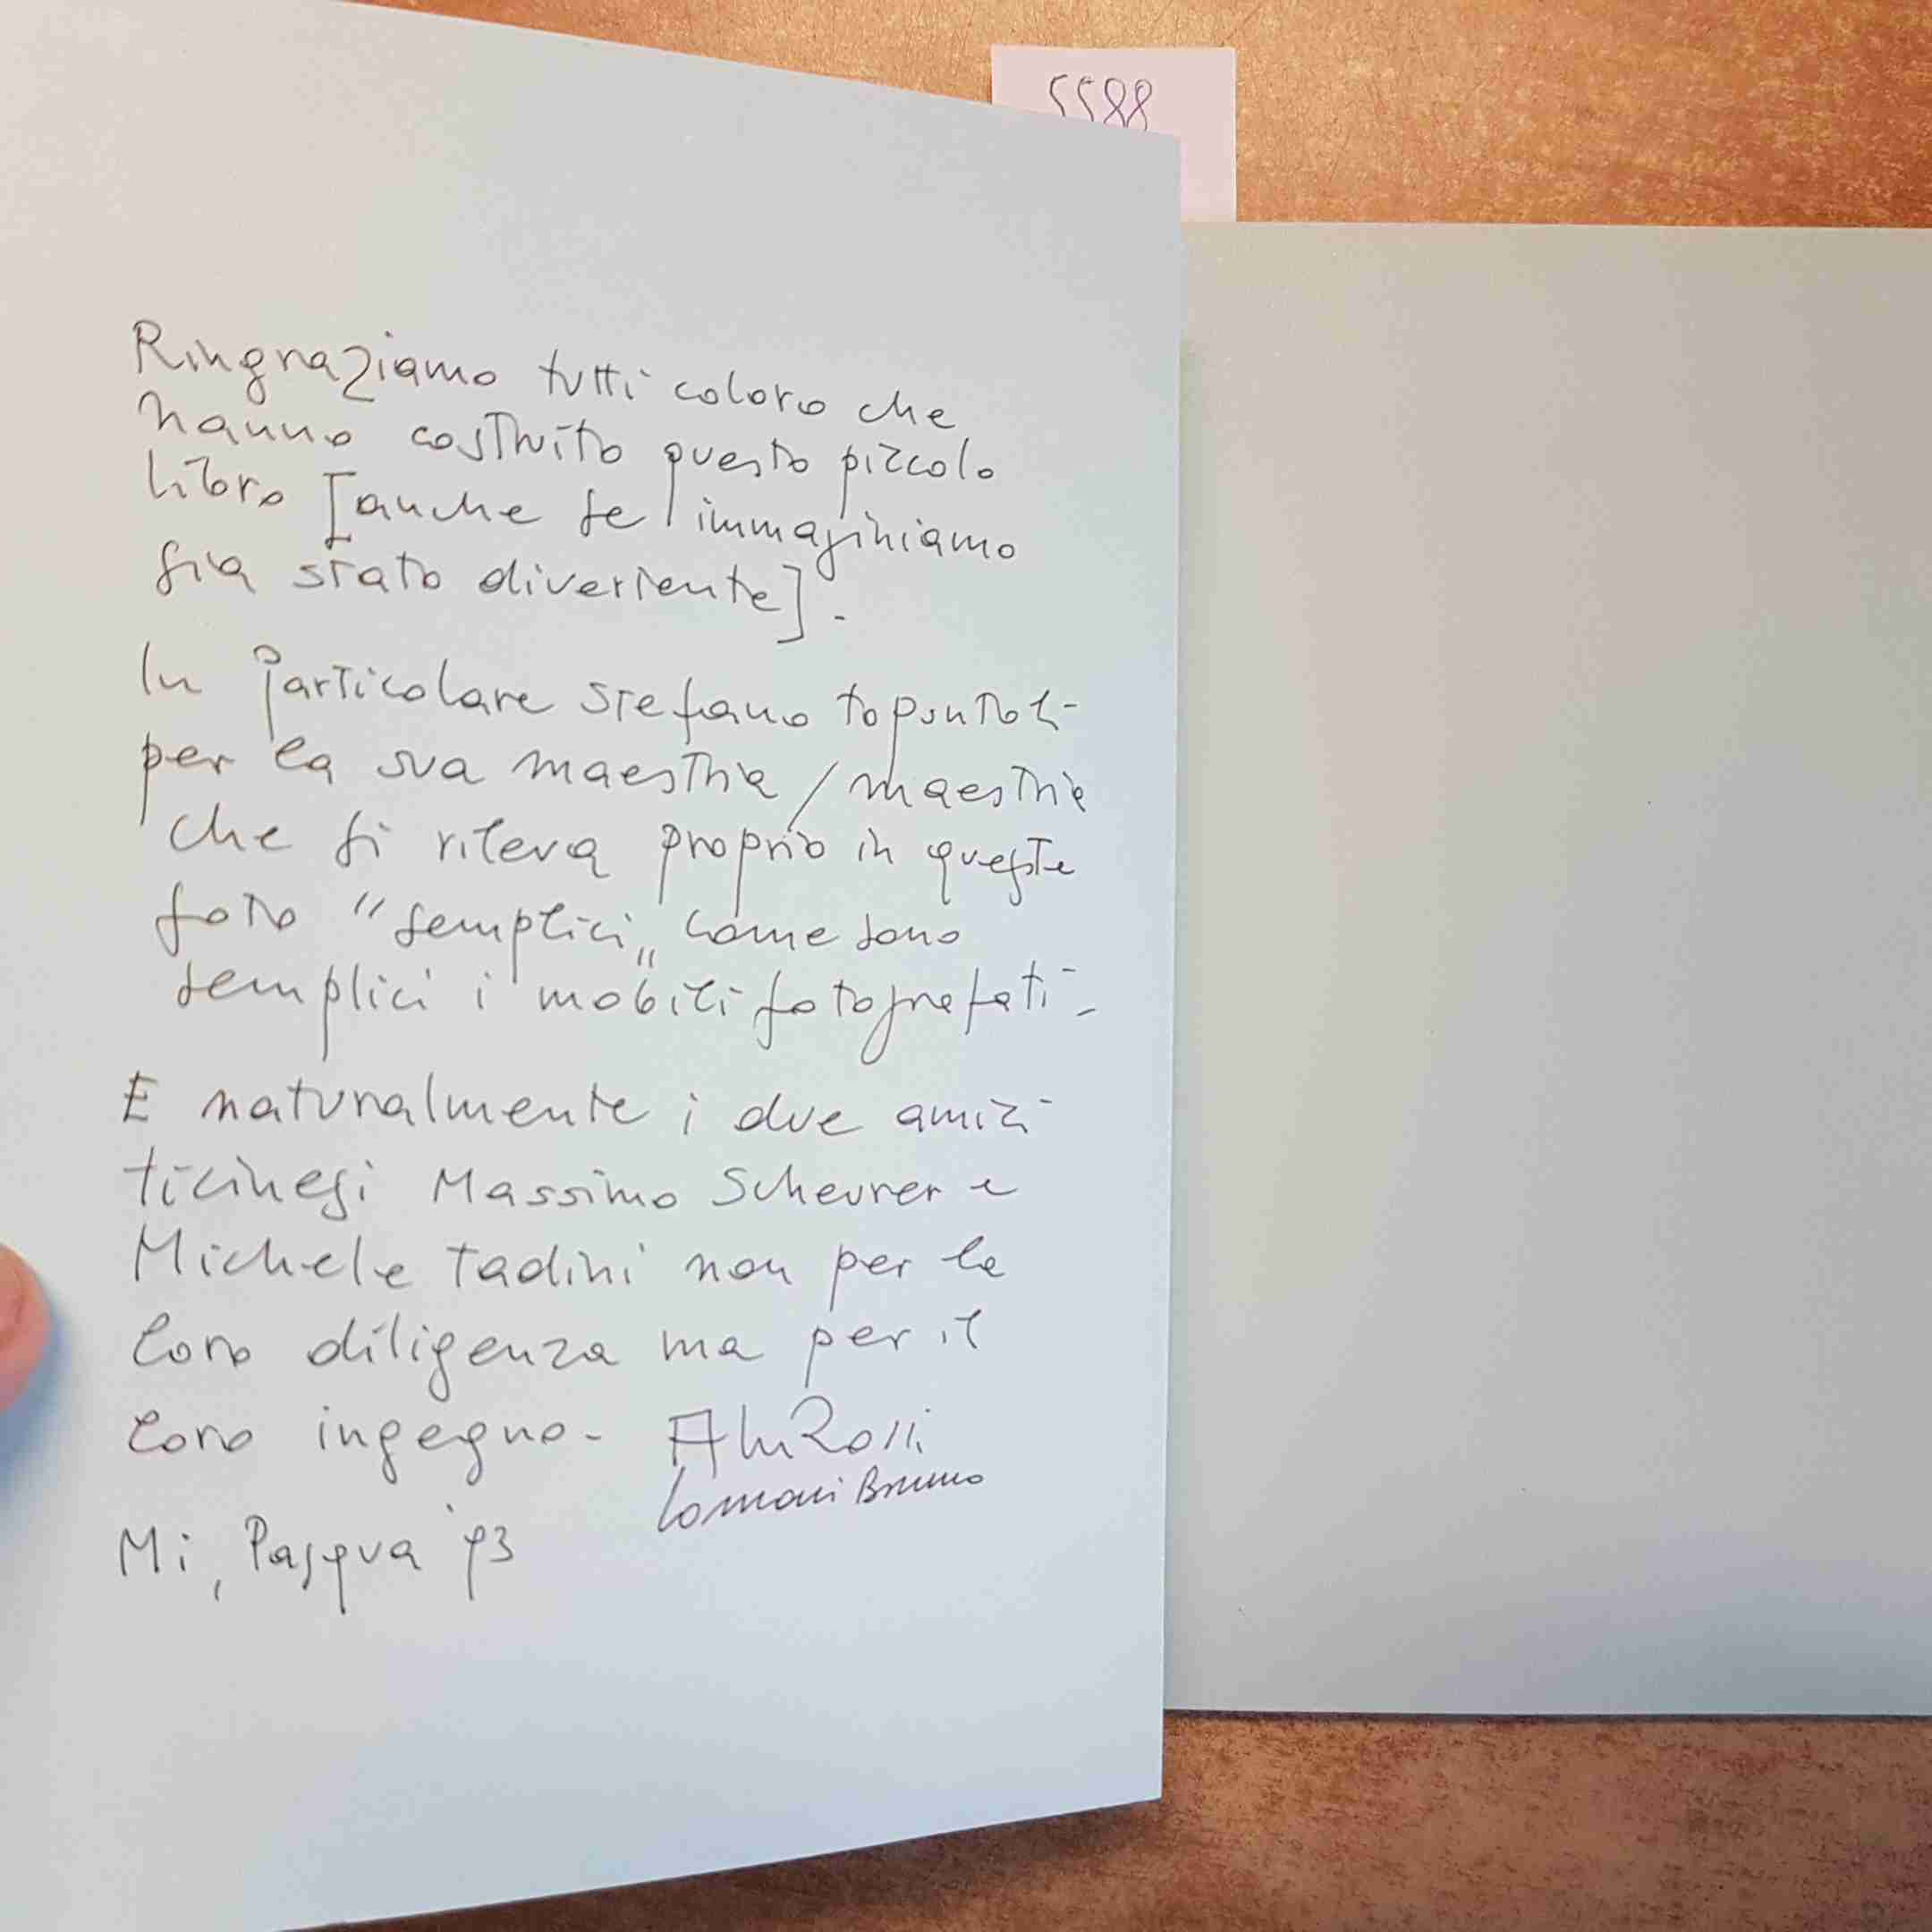 5588
Ringnaziamo tutti coloro che
hanno costruito questo piccolo
libro [anche se immaginiamo
sia stato divertente].
In particolare Stefano Topuntoli
per la sua maestria / maestria
che si rileva proprio in queste
foto "semplici" come sono
semplici i mobili fotografati -
E naturalmente i due amici
ticinesi Massimo Scheurer e
Michele Tadini non per la
loro diligenza ma per il
loro ingegno - Aldo Rossi
Longoni Bruno
Mi, Pasqua '93